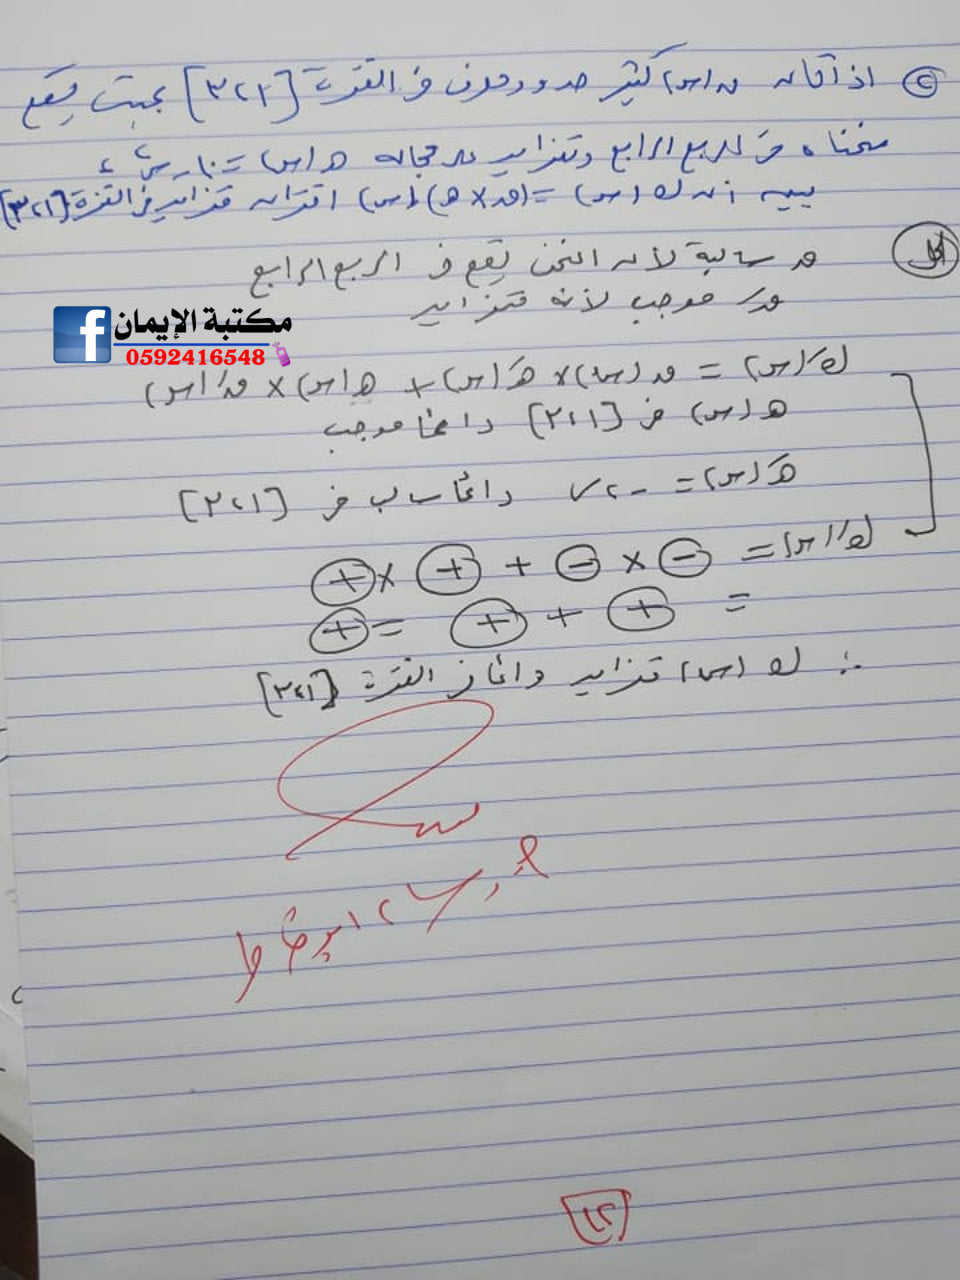 ⓒ اذا كان ق(س) كثير حدود معرف في الفترة [٣،١] بحيث يقع
منحناه في الربع الرابع ومتزايد على مجاله هـ(س) =
بين أن ك(س) = (ق×هـ)(س) اقتران متزايد في الفترة [٣،١]
الحل
ق سالبة لأن المنحنى يقع في الربع الرابع
قَ موجب لأنه متزايد
مكتبة الإيمان
0592416548
كَ(س) = ق(س) × هـَ(س) + هـ(س) × قَ(س)
هـ(س) في [٣،١] دائما موجب
هـَ(س) = -٢س دائما سالب في [٣،١]
كَ(س) = ⊖ × ⊖ + ⊕ × ⊕
= ⊕ + ⊕ = ⊕
∴ ك(س) متزايد دائما في الفترة [٣،١]
١٢